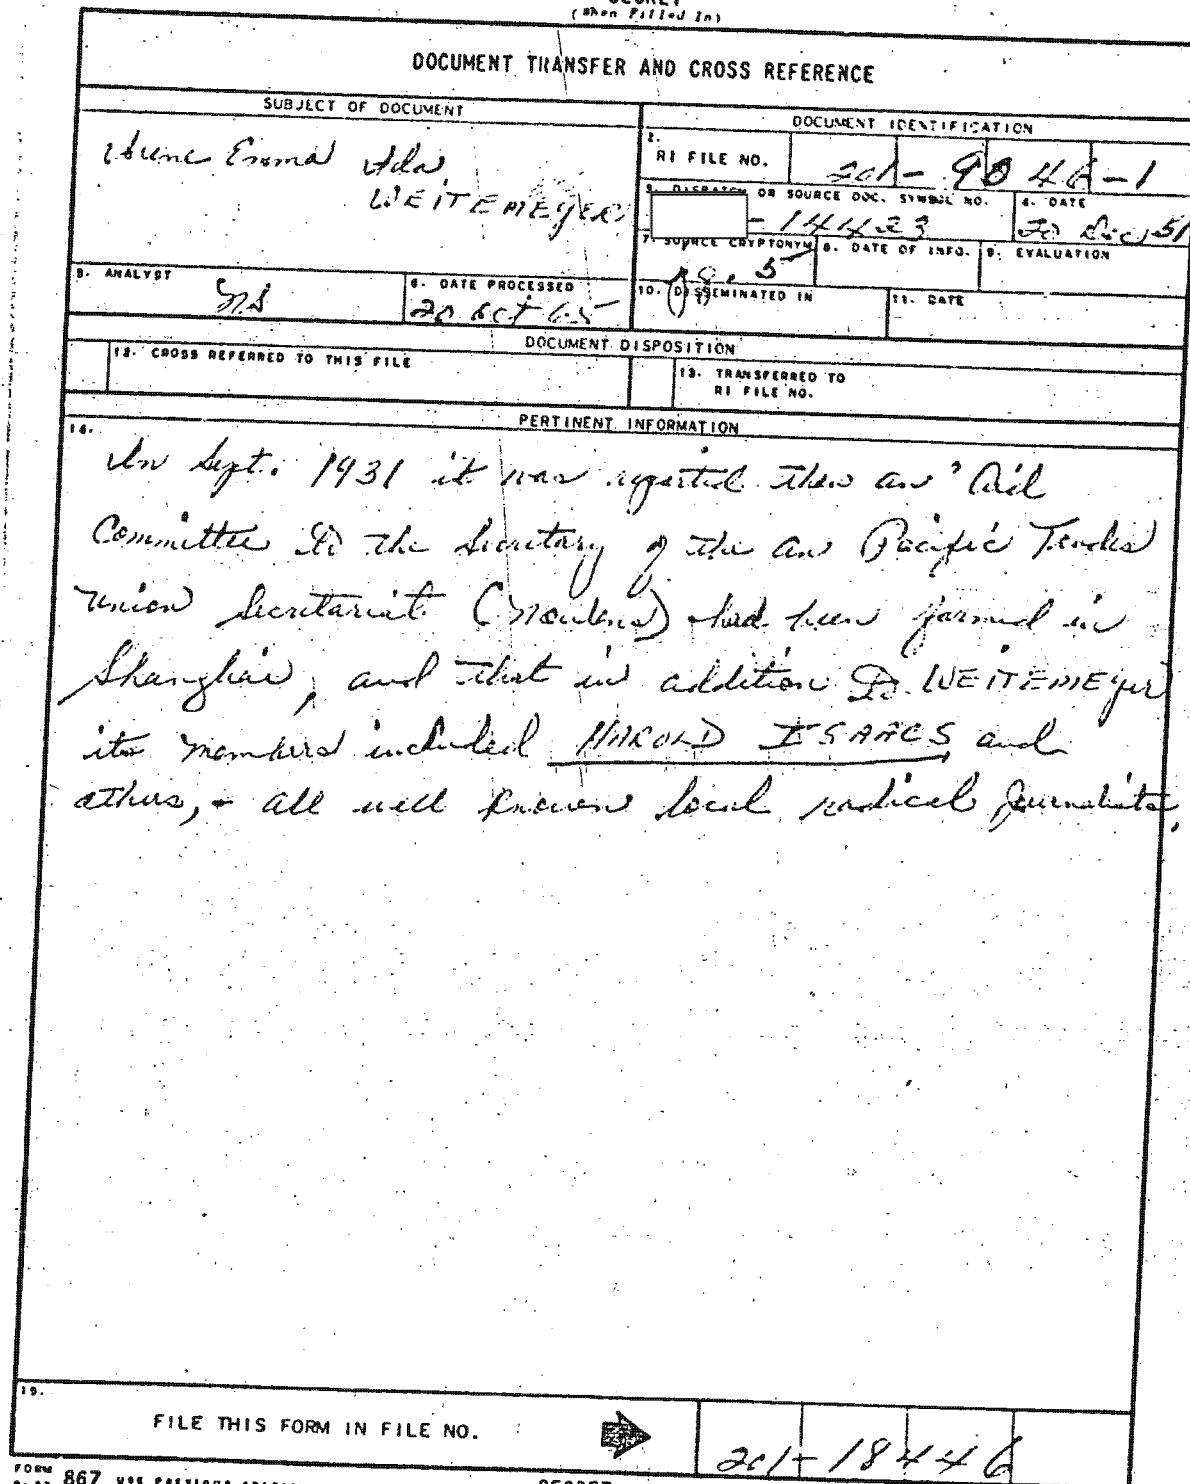 SECRET
(When Filled In)
DOCUMENT TRANSFER AND CROSS REFERENCE
SUBJECT OF DOCUMENT
Irene Emma Ida
WEITEMEYER
DOCUMENT IDENTIFICATION
2. RI FILE NO. 201-9046-1
3. DISPATCH OR SOURCE DOC. SYMBOL NO.
-14423
4. DATE
20 Dec 51
5. ANALYST
6. DATE PROCESSED
20 Oct 65
7. SOURCE CRYPTONYM
pg. 5
8. DATE OF INFO.
9. EVALUATION
10. DISSEMINATED IN
11. DATE
DOCUMENT DISPOSITION
12. CROSS REFERRED TO THIS FILE
13. TRANSFERRED TO
RI FILE NO.
PERTINENT INFORMATION
14.
In Sept. 1931 it was reported that an Aid
Committee to the Secretary of the Pan Pacific Trades
Union Secretariat (Noulens) had been formed in
Shanghai, and that in addition to WEITEMEYER
its members included HAROLD ISAACS and
others, - all well known local radical journalists.
15.
FILE THIS FORM IN FILE NO.
201-18446
FORM 867 USE PREVIOUS
SECRET